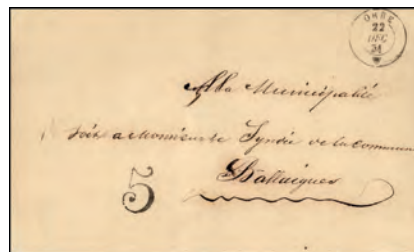 ORBE
22
DEC
51
A la Municipalité
soit à Monsieur le Syndic de la Commune
Ballaigues
5